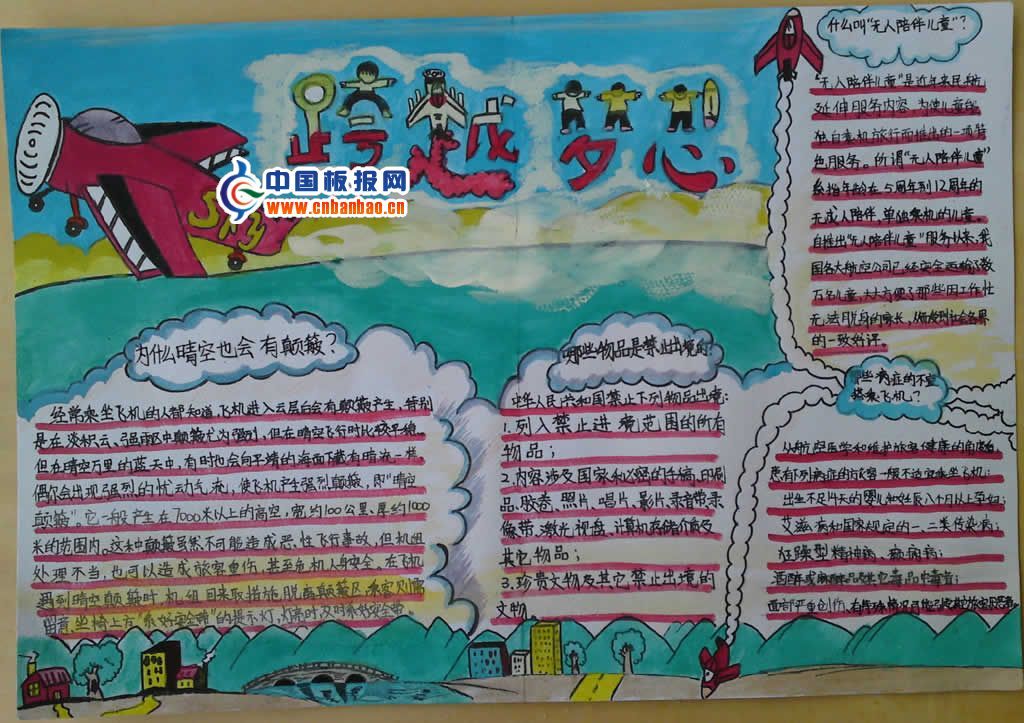 跨越梦想
Sky
中国板报网
www.cnbanbao.cn
什么叫“无人陪伴儿童”?
“无人陪伴儿童”是近年来民航
延伸服务内容,为使儿童能
独自乘机旅行而推出的一项特
色服务。所谓“无人陪伴儿童”
是指年龄在5周年到12周年的
无成人陪伴、单独乘机的儿童。
自推出“无人陪伴儿童”服务以来,我
国各大航空公司已经安全运输了数
万名儿童,大大方便了那些因工作忙
无法脱身的家长,颇受到社会各界
的一致好评。
为什么晴空也会有颠簸?
经常乘坐飞机的人都知道,飞机进入云层后会有颠簸产生,特别
是在淡积云、强雨区中颠簸尤为强烈,但在晴空飞行时比较平稳。
但在晴空万里的蓝天中,有时也会向平靖的海面下藏有暗流一样
偶尔会出现强烈的扰动气流,使飞机产生强烈颠簸,即“晴空
颠簸”。它一般产生在7000米以上的高空,宽约100公里、厚约1000
米的范围内。这种颠簸虽然不可能造成恶性飞行事故,但机组
处理不当,也可以造成旅客重伤,甚至危机人身安全。在飞机
遇到晴空颠簸时,机组会采取措施,脱离颠簸区,乘客则需
留意,坐椅上方“系好安全带”的提示灯,灯亮时及时系好安全带。
哪些物品是禁止出境的?
中华人民共和国禁止下列物品出境:
1.列入禁止进境范围的所有
物品;
2.内容涉及国家和必密的手稿、印刷
品、胶卷、照片、唱片、影片、录音带、录
像带、激光视盘、计算机存储介质及
其它物品;
3.珍贵文物及其它禁止出境的
文物。
些病症的不宜
搭乘飞机?
从航空医学和维护旅客健康的角度看,
患有列病症的旅客一般不适宜乘坐飞机:
出生不足14天的婴儿和妊娠八个月以上孕妇;
艾滋病和国家规定的一、二类传染病;
狂躁型精神病、癫痫病;
酒醉或麻醉品及其它毒品中毒者;
面部严重创伤,有特殊情况可能